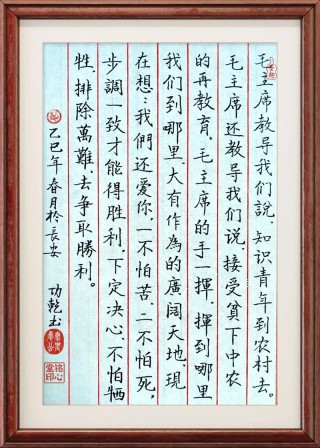 毛主席教导我们說、知识青年到农村去。
毛主席还教导我们说、接受貧下中农
的再教育、毛主席的手一揮、揮到哪里
我们到哪里、大有作為的廣阔天地、現
在想：我們还爱你、一不怕苦、二不怕死，
步調一致才能得胜利、下定决心、不怕牺
牲、排除萬難、去争取勝利。
乙巳年春月於長安 功乾书